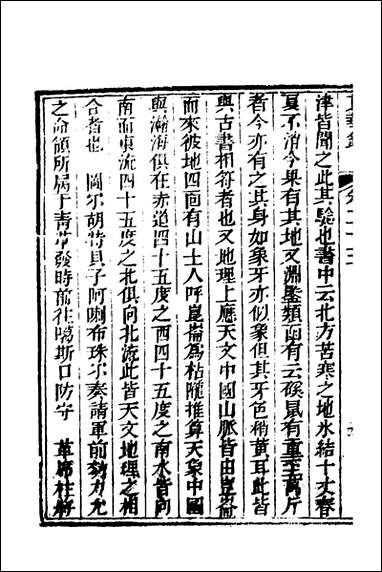 津皆聞之此其驗也書中云北方苦寒之地氷結十丈春
夏不消今果有其地又淵鑒類函有云磎鼠有重至萬斤
者今亦有之其身如象牙亦似象但其牙色稍黃耳此皆
與古書相符者也又地理上應天文中國山脈皆由崑崙
而來彼地四面有山土人呼崑崙爲枯隴推算天象中國
與瀚海俱在赤道四十五度之西四十五度之南水皆向
南而東流四十五度之北俱向北流此皆天文地理之相
合者也 圖尔胡特貝子阿喇布珠尔奏請軍前効力允
之命領所屬于青草發時前往噶斯口防守 革席柱將